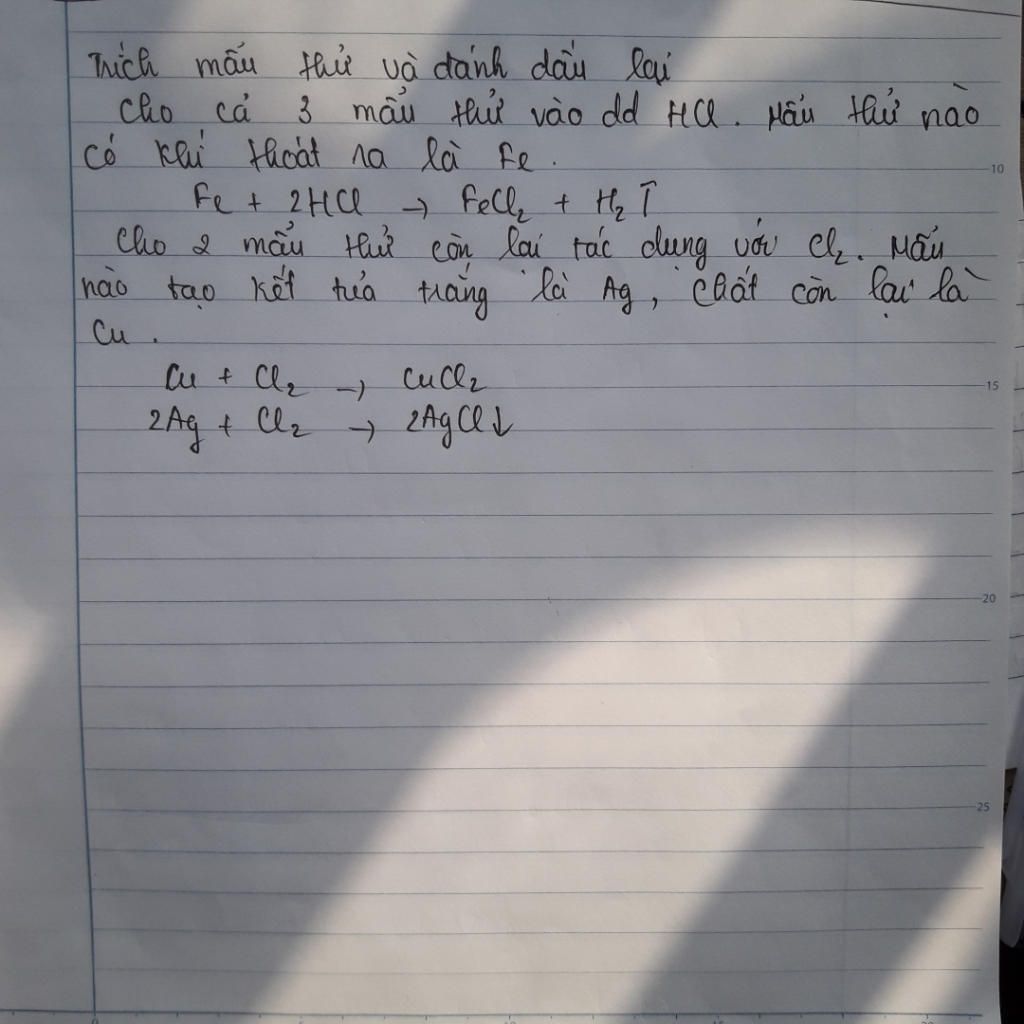 Trích mẫu thử và đánh dấu lại
Cho cả 3 mẩu thử vào dd HCl. Mẩu thử nào
có khí thoát ra là Fe.
Fe + 2HCl → FeCl₂ + H₂ ↑
Cho 2 mẩu thử còn lại tác dụng với Cl₂. Mẩu
nào tạo kết tủa trắng là Ag, chất còn lại là
Cu.
Cu + Cl₂ → CuCl₂
2Ag + Cl₂ → 2AgCl↓
10
15
20
25